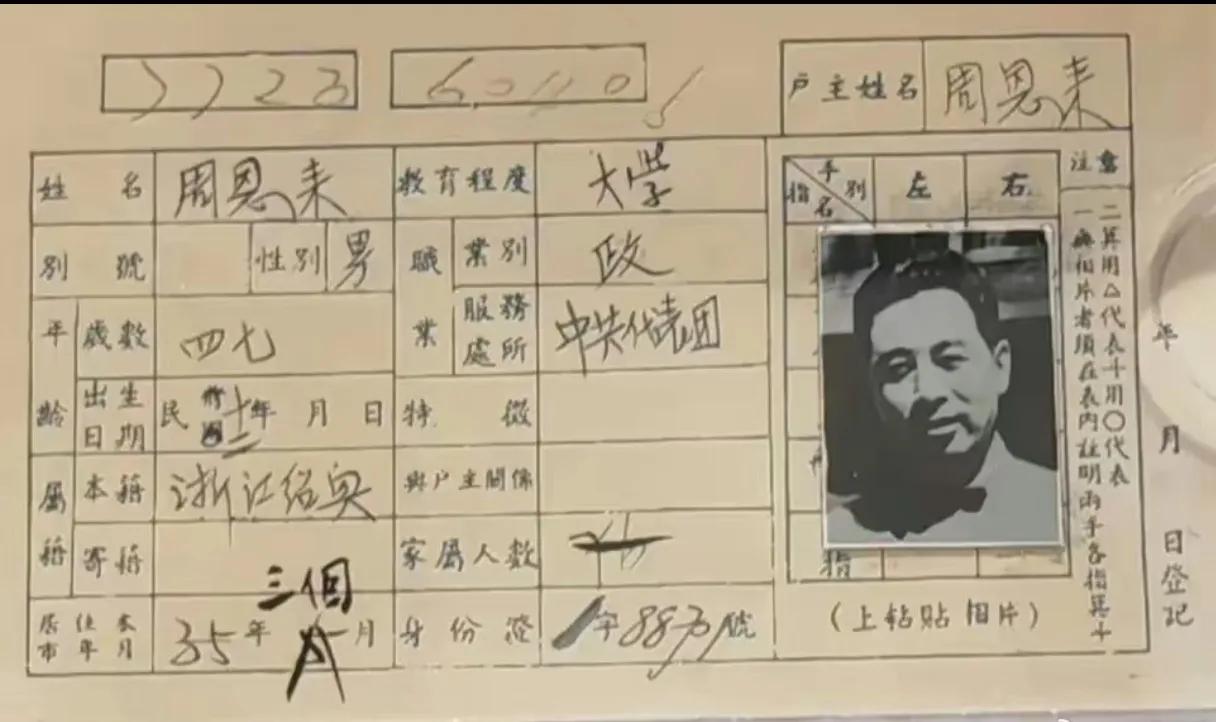 7723
6.0110
户主姓名 周恩来
姓名 周恩来 教育程度 大学
别號 性别 男 職業 業别 政
年齡 歲数 四七 服務處所 中共代表团
出生日期 民前國十二年 月 日 特徵
屬籍 本籍 浙江绍兴 與户主關係
寄籍 家屬人数
居住本市年月 35年 三個月 身份證 字 號
指名 手别 左 右
指
(上粘贴相片)
注意
一無相片者須在表内註明兩手各指箕斗
二箕用△代表斗用〇代表
年 月 日登記